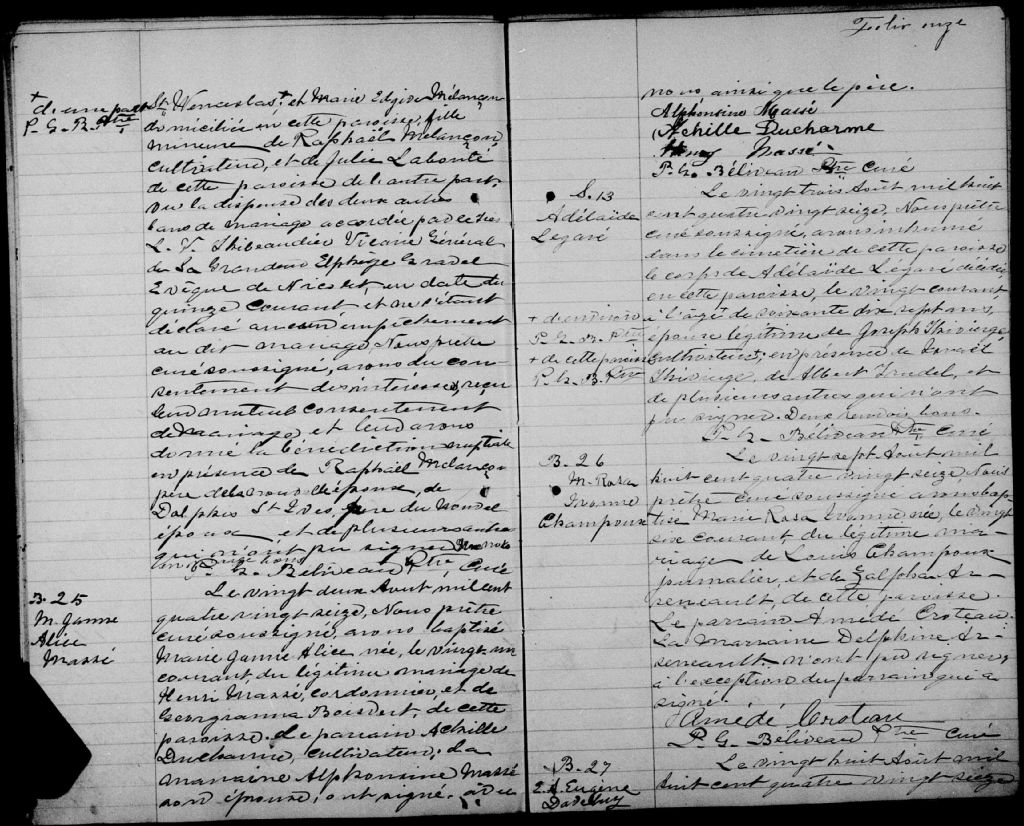 + d'une part
P. G. B. Ptre
St Wenceslas + et Marie Edgide Mélançon
domiciliée en cette paroisse, fille
mineure de Raphaël Melançon,
cultivateur, et de Julie Labonté
de cette paroisse de l'autre part,
vu la dispense des deux autres
bans de mariage accordée par le Rés
L. V. Thibeaudier Vicaire Général
de Sa Grandeur Elphège Gravel
Evêque de Nicolet, en date du
quinze courant et ne s'étant
déclaré aucun empêchement
au dit mariage, Nous prêtre
curé soussigné, avons du con-
sentement des intéressés, reçu
leur mutuel consentement
de mariage et leur avons
donné la bénédiction nuptiale
en présence de Raphaël Melançon
père de l'épouse, de
Dolphis St Yves, père du
époux et de plusieurs autres
qui n'ont pu signer
P. G. Béliveau Ptre, Curé
B. 25
M. Jannie
Alice
Massé
Le vingt deux Aout mil cent
quatre vingt seize, Nous prêtre
curé soussigné, avons baptisé
Marie Jannie Alice, née, le vingt un
courant, du légitime mariage de
Henri Massé, cordonnier, et de
Georgianna Boisvert, de cette
paroisse. Le parrain Achille
Ducharme, cultivateur; La
marraine Alphonsine Massé
son épouse, ont signé, avec
Folio onze
nous ainsi que le père.
Alphonsine Massé
Achille Ducharme
Henry Massé
P. G. Béliveau Ptre Curé
S. 13
Adélaïde
Légaré
Le vingt trois Août mil huit
cent quatre vingt seize, Nous prêtre
curé soussigné, avons inhumé
dans le cimetière de cette paroisse
le corps de Adélaïde Légaré décédée
en cette paroisse, le vingt courant,
à l'âge de soixante dix sept ans,
épouse légitime de Joseph Thivierge
cultivateur; en présence de Israël
Thivierge, de Albert Trudel, et
de plusieurs autres qui n'ont
pu signer. Deux renvois bons.
P. G. Béliveau Ptre Curé
P. G. B. Ptre
+ de cette paroisse
P. G. B. Ptre
B. 26
M. Rosa
Ivonne
Champoux
Le vingt sept Aout mil
huit cent quatre vingt seize, Nous
prêtre Curé soussigné avons bap-
tisé Marie Rosa Ivonne née, le vingt
six courant du légitime ma-
riage de Louis Champoux
journalier, et de Zalpha Ar-
seneault, de cette paroisse.
Le parrain Amédé Croteau.
La Marraine Delphine Ar-
seneault n'ont pu signer,
à l'exception du parrain qui a
signé.
Amédé Croteau
P. G. Béliveau Ptre Curé
B. 27
Eugène
Le vingt huit Août mil
huit cent quatre vingt seize